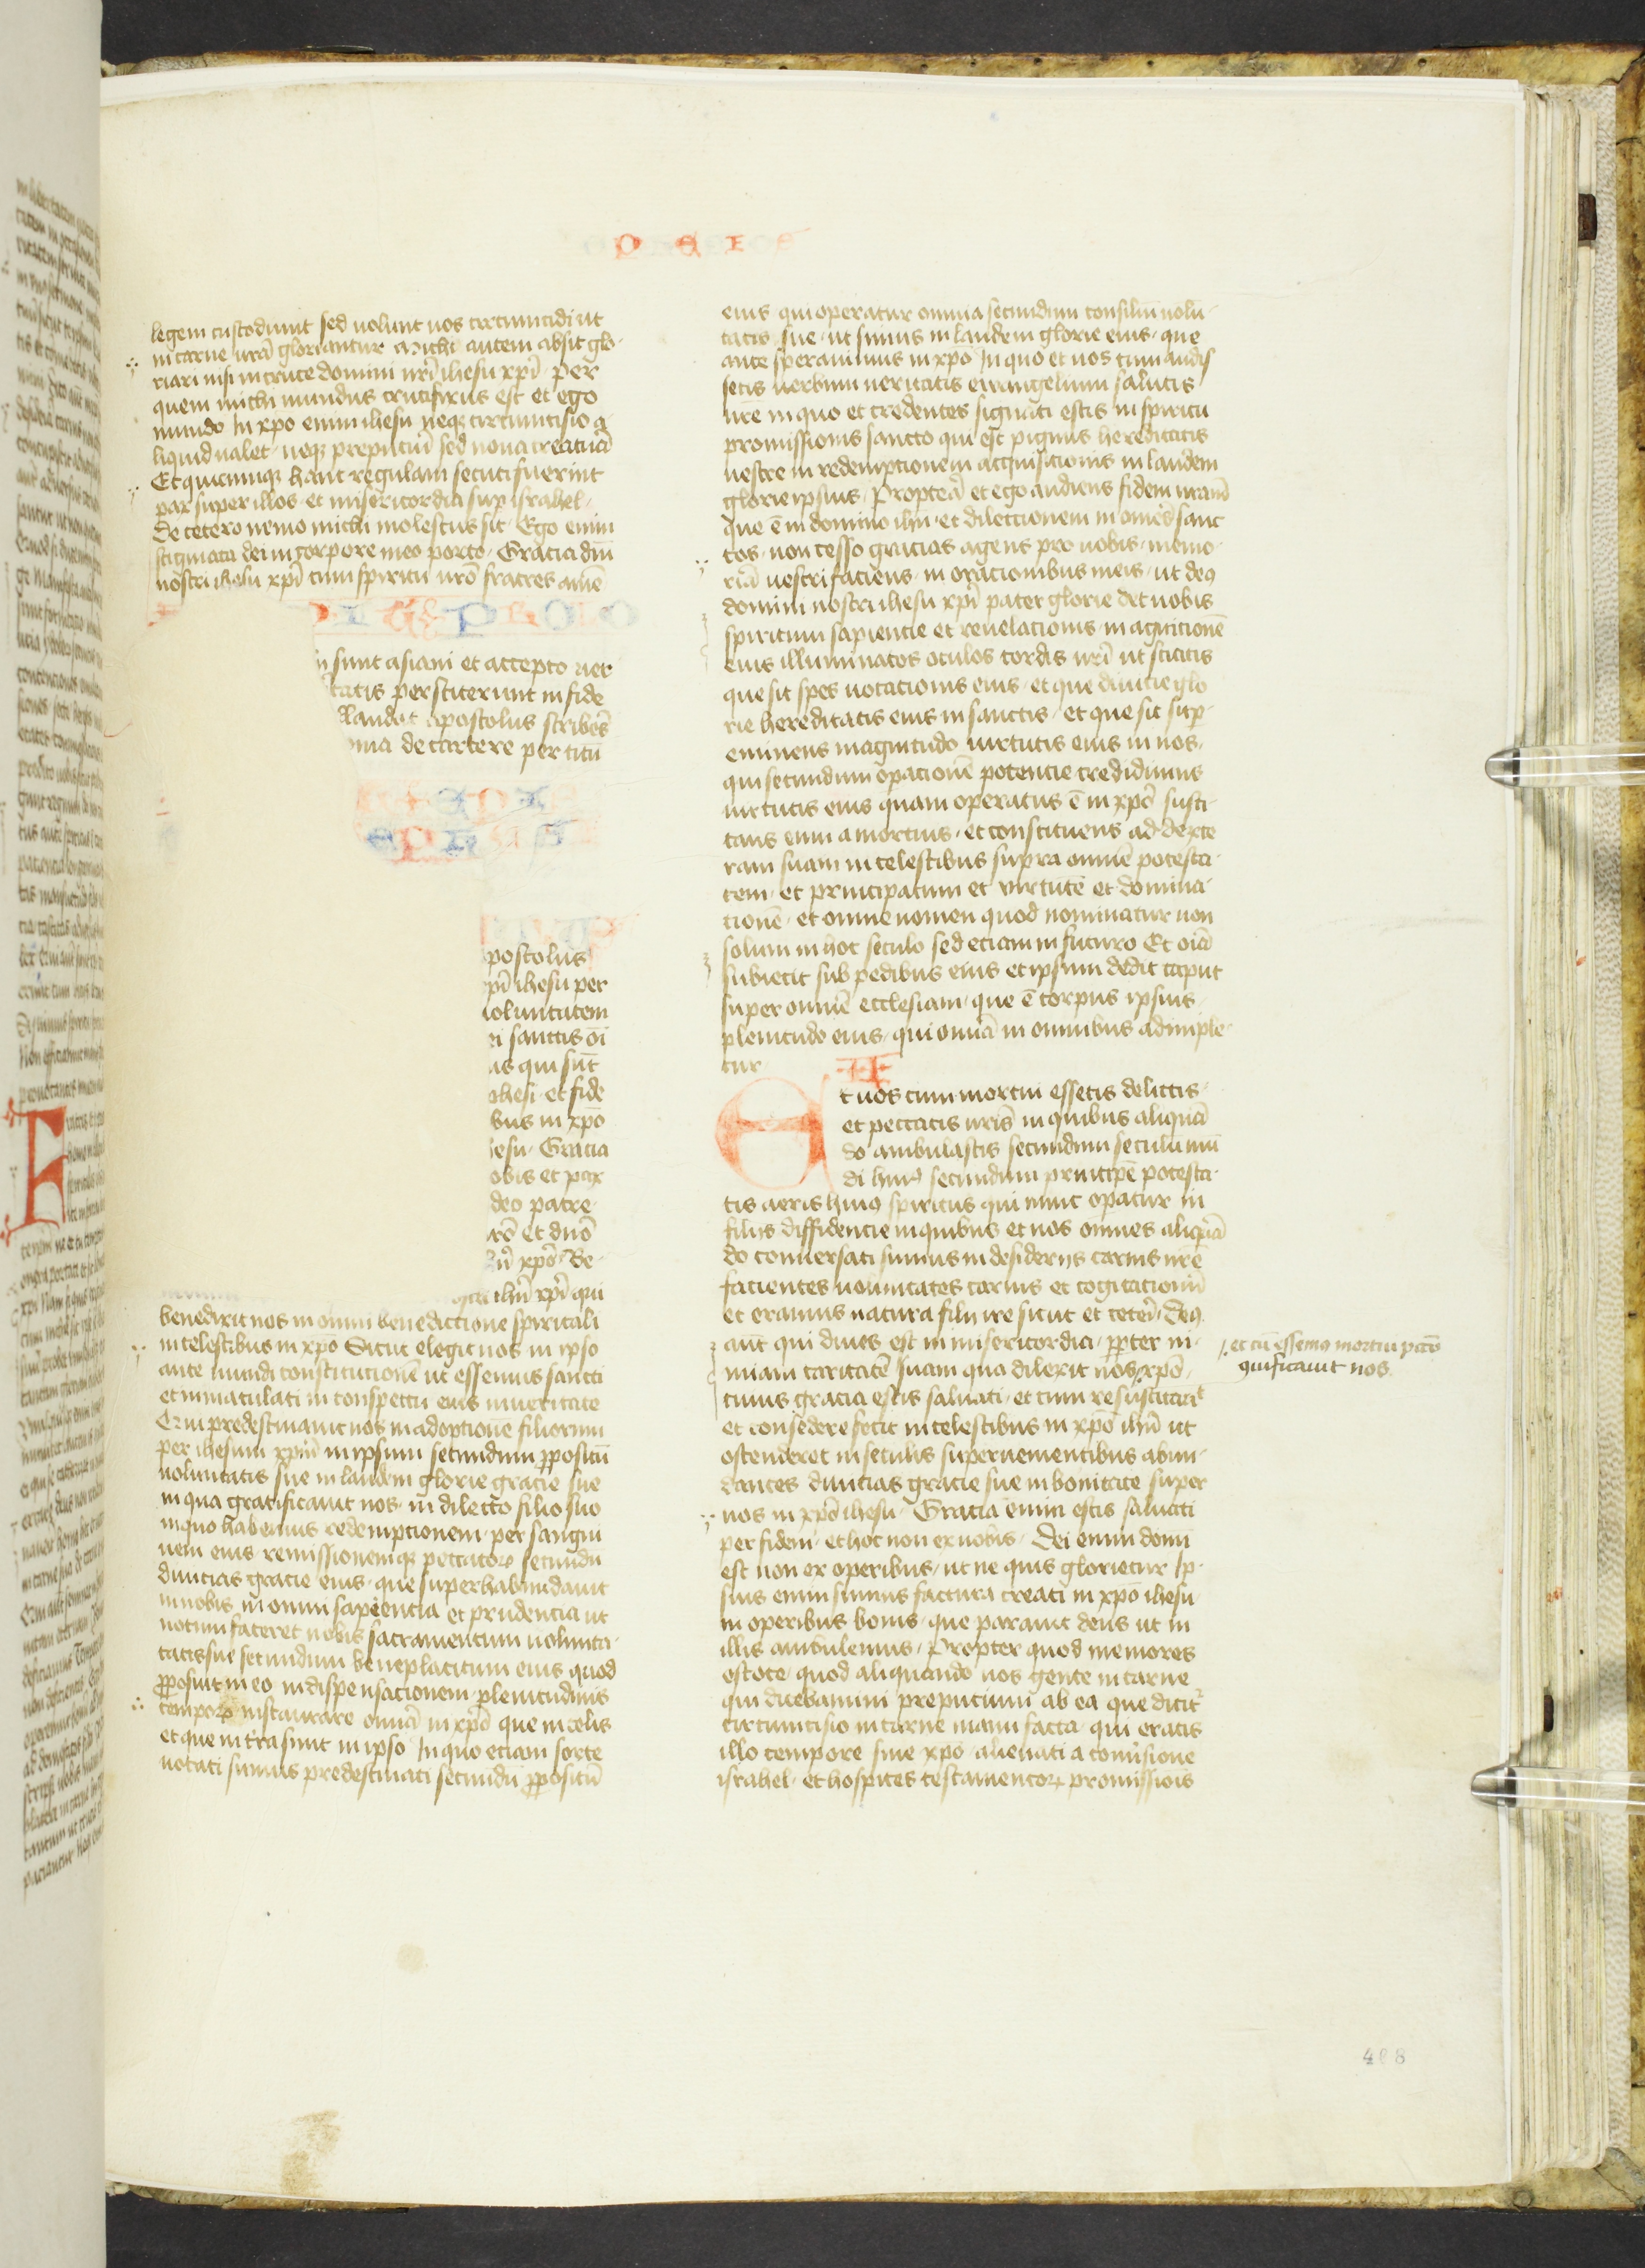 legem custodiunt sed uolunt uos circumcidi ut
in carne ur̄a gloriantur Michi autem absit glo-
riari nisi in cruce domini nr̄i ihesu xp̄i per
quem michi mundus crucifixus est et ego
mundo In xp̄o enim ihesu neq; circumcisio a
liquid ualet neq; prepuciū sed noua creatura
Et quicumq; hanc regulam secuti fuerint
pax super illos et misericordia sup israhel
De cetero nemo michi molestus sit Ego enim
stigmata dei in corpore meo porto Gracia dn̄i
nostri ihesu xp̄i cum spiritu ur̄o fratres amē
sunt asiani et accepto uer
tatis perstiterunt in fide
laudat apostolus scribēs
oma de carcere per titū
postolus
pī ihesu per
uoluntatem
sanctis oī
us qui sūt
ohesi et fide
bus in xp̄o
iesu Gracia
obis et pax
deo patre
rō et dn̄o
xp̄o Be-
ihū xp̄i qui
benedixit nos in omni benedictione spiritali
in celestibus in xp̄o Sicut elegit nos in ipso
ante mundi constitucionē ut essemus sancti
et inmaculati in conspectu eius in ueritate
Qui predestinauit nos in adoptionē filiorum
per ihesum xp̄m in ipsum secundum p̄positū
uoluntatis sue in laudem glorie gracie sue
in qua gratificauit nos in dilecto filio suo
in quo habemus redemptionem per sangui
nem eius remissionemq; peccator̄ secundū
diuicias gracie eius que superhabundauit
in nobis in omni sapiencia et prudencia ut
notum faceret nobis sacramentum uolunta-
tis sue secundum beneplacitum eius quod
p̄posuit in eo in dispensacionem plenitudinis
tempor̄ instaurare omnia in xp̄o que in celis
et que in tr̄a sunt in ipso In quo etiam sorte
uocati sumus predestinati secundū p̄positū
eius qui operatur omnia secundum consiliū uolū-
tatis sue ut simus in laudem glorie eius que
ante sperauimus in xp̄o In quo et uos cum audis
setis uerbum ueritatis euuangelium salutis
ur̄e in quo et credentes signati estis in spiritu
promissionis sancto qui est pignus hereditatis
nostre in redemptionem acquisicionis in laudem
glorie ipsius Proptea et ego audiens fidem uram̄
que ē in domino ihū et dilectionem in omēs sanc
tos non cesso gracias agens pro uobis memo-
riā uestri faciens in oracionibus meis ut deꝰ
domini nostri ihesu xp̄i pater glorie det uobis
spiritum sapiencie et reuelacionis in agnicionē
eius illuminatos oculos cordis ur̄i ut sciatis
que sit spes uocacionis eius et que diuicie glo
rie hereditatis eius in sanctis et que sit sup-
eminens magnitudo uirtutis eius in nos
qui secundum opacionē potencie credidimus
uirtutis eius quam operatus ē in xp̄o susci-
tans eum a mortuis et constituens ad dexte
ram suam in celestibus supra omnē potesta-
tem et principatum et uirtutē et domina-
tionē et omne nomen quod nominatur non
solum in hoc seculo sed etiam in futuro Et oīa
subiecit sub pedibus eius et ipsum dedit caput
super omnē ecclesiam que ē corpus ipsius
plenitudo eius qui omīa in omnibus adimple-
tur
II
Et uos cum mortui essetis delictis
et peccatis ur̄is in quibus aliquā
do ambulastis secundum seculū mū
di huiꝰ secundum principē potesta-
tis aeris huiꝰ spiritus qui nunc opatur in
filios diffidencie in quibus et nos omnes aliquā
do conuersati sumus in desiderijs carnis nr̄e
facientes uoluntates carnis et cogitacionū
et eramus natura filii ire sicut et ceteri Deꝰ
aut̄ qui diues est in misericordia p̄pter ni-
miam caritatē suam qua dilexit nos xp̄o
cuius gracia estis saluati et cum resuscitauit
et consedere fecit in celestibus in xp̄o ihū ut
ostenderet in seculis superuenientibus abun-
dantes diuicias gracie sue in bonitate super
nos in xp̄o ihesu Gracia enim estis saluati
per fidem et hoc non ex uobis Dei enim donū
est non ex operibus ut ne quis glorietur Ip-
sius enim sumus factura creati in xp̄o ihesu
in operibus bonis que parauit deus ut in
illis ambulemus Propter quod memores
estote quod aliquando uos gente in carne
qui dicebamini prepucium ab ea que dicit̄
circumcisio in carne manu facta qui eratis
illo tempore sine xp̄o alienati a conūsione
israhel et hospites testamentor̄ promissiōis
et cū essemꝰ mortui pcc̄o
uiuificauit nos
408